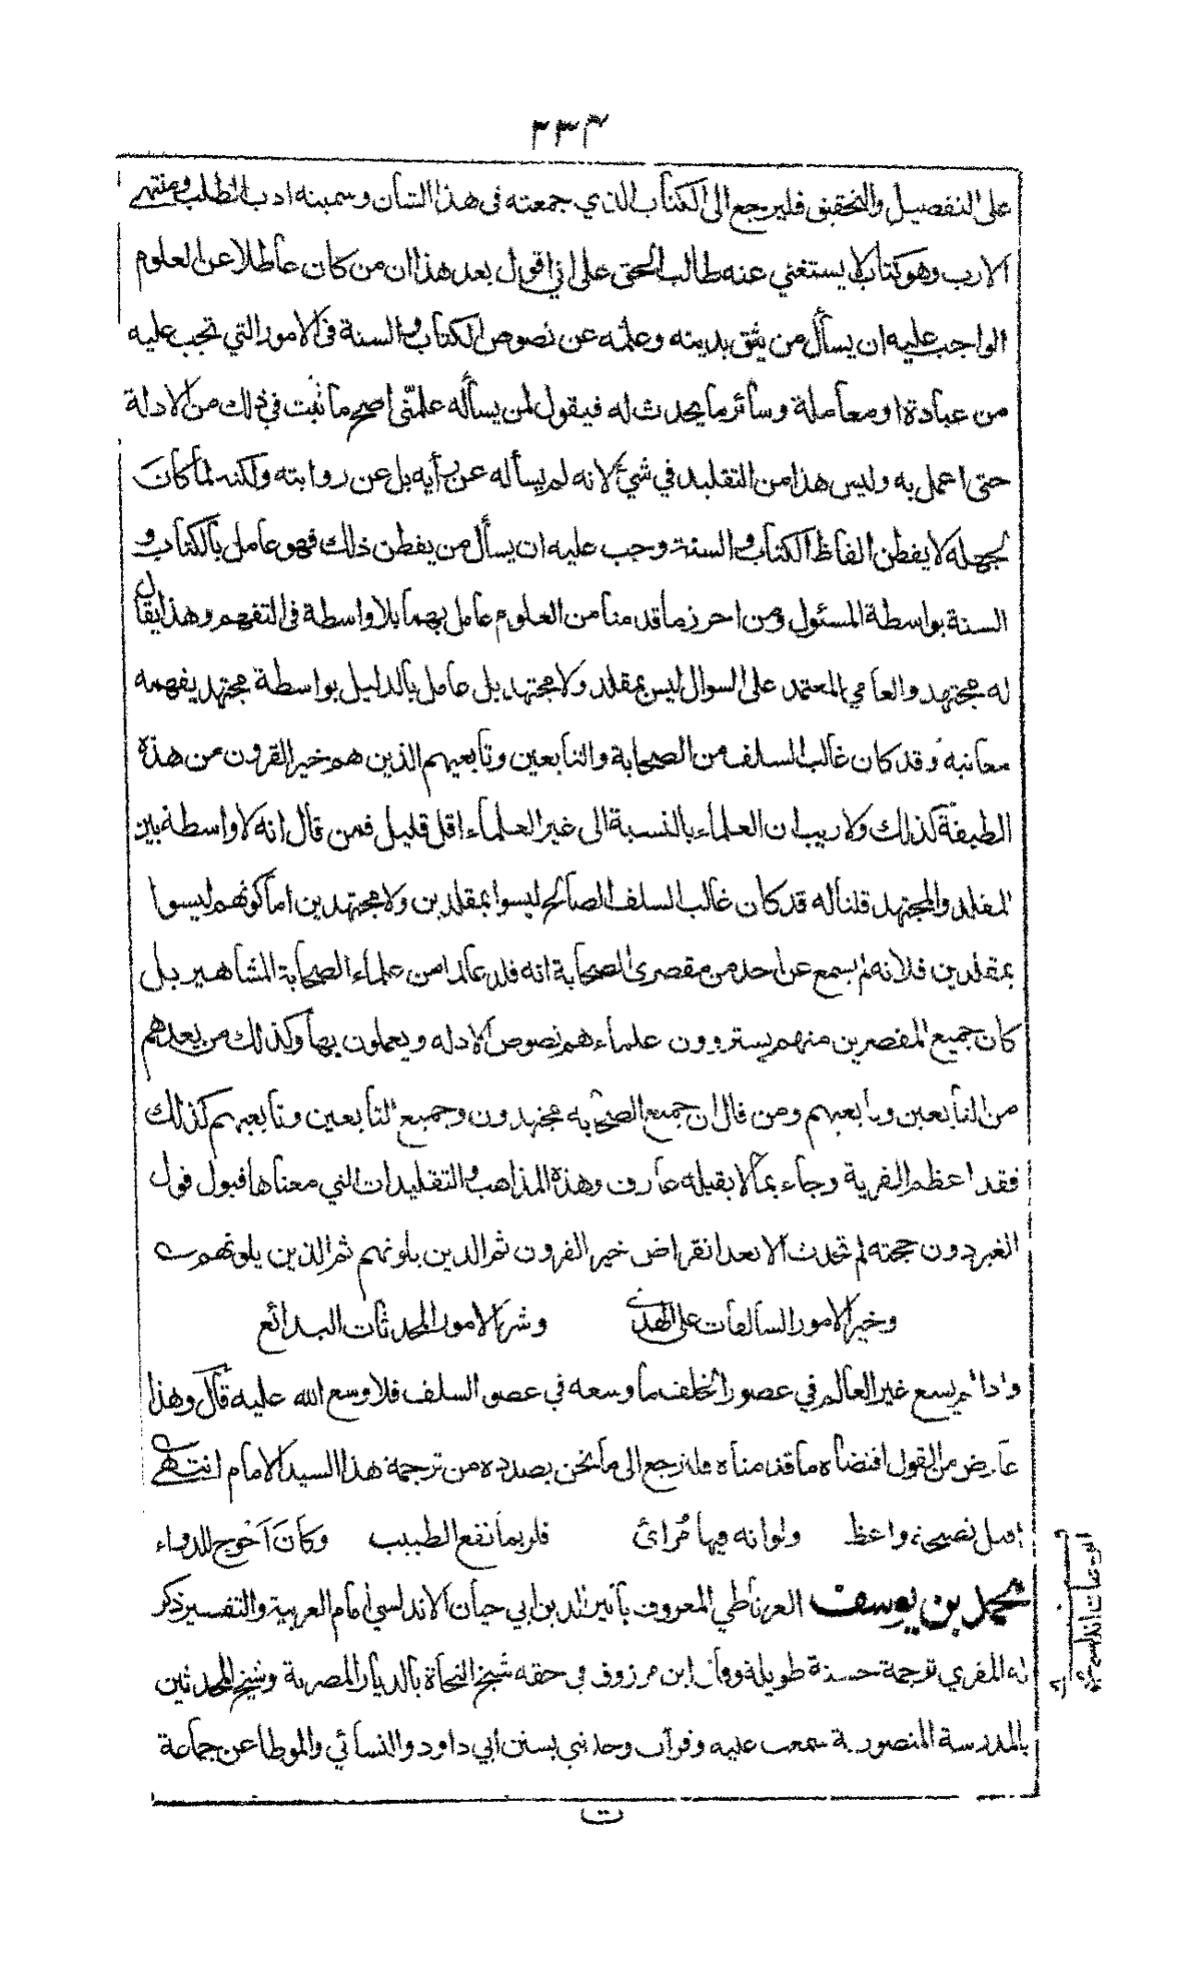 ٢٣٣
على التفصيل والتحقيق فليرجع الى الكتاب الذي جمعته في هذا الشان وسميته ادب الطلب ومنتهى
الارب وهو كتاب لا يستغني عنه طالب الحق على اني اقول بعد هذا ان من كان عاطلا عن العلوم
الواجب عليه ان يسأل من يثق بدينه وعلمه عن نصوص الكتاب والسنة في الامور التي تجب عليه
من عبادة او معاملة وسائر ما يحدث له فيقول لمن يسأله علمنّي اصح ما ثبت في ذلك من الادلة
حتى اعمل به وليس هذا من التقليد في شيء لانه لم يسأله عن رأيه بل عن روايته ولكنه لما كان
لجهله لا يفطن الفاظ الكتاب والسنة وجب عليه ان يسأل من يفطن ذلك فهو عامل بالكتاب و
السنة بواسطة المسئول ومن احرز ما قدمنا من العلوم عامل بهما بلا واسطة في التفهم وهذا يقال
له مجتهد والعامي المعتمد على السوال ليس بمقلد ولا مجتهد بل عامل بالدليل بواسطة مجتهد يفهمه
معانيه وقد كان غالب السلف من الصحابة والتابعين وتابعيهم الذين هم خير القرون من هذه
الطبقة كذلك ولا ريب ان العلماء بالنسبة الى غير العلماء اقل قليل فمن قال انه لا واسطة بين
المقلد والمجتهد قلنا له قد كان غالب السلف الصالح ليسوا بمقلدين ولا مجتهدين اما كونهم ليسوا
بمقلدين فلانه لم يسمع عن احد من مقصرى الصحابة انه قلد عالما من علماء الصحابة المشاهير بل
كان جميع المقصرين منهم يستروون علماءهم نصوص الادله ويعملون بها وكذلك من بعدهم
من التابعين وتابعيهم ومن قال ان جميع الصحابه مجتهدون وجميع التابعين وتابعيهم كذلك
فقد اعظم الفرية وجاء بما لا يقبله عارف وهذه المذاهب والتقليدات التي معناها قبول قول
الغير دون حجته لم تحدث الا بعد انقراض خير القرون ثم الذين يلونهم ثم الذين يلونهم
وخير الامور السالفات على الهدى وشر الامور المحدثات البدائع
واذا لم يسع غير العالم في عصور الخلف ما وسعه في عصر السلف فلا وسع الله عليه قال وهذا
عارض من القول اقتضاه ما قدمناه ولنرجع الى ما نحن بصدده من ترجمة هذا السيد الامام انتهى
اقبل نصيحة واعظ ولو انه فيها مُرائ فلربما نفع الطبيب وكان اَحْوج للدواء
محمد بن يوسف الغرناطي المعروف باثير الدين ابي حيان الاندلسي امام العربية والتفسير ذكر
له المقري ترجمة حسنة طويلة وقال ابن مرزوق في حقه شيخ النحاة بالديار المصرية وشيخ المحدثين
بالمدرسة المنصورية سمعت عليه وقرأت وحدثني بسنن ابي داود والنسائي والموطا عن جماعة
ت